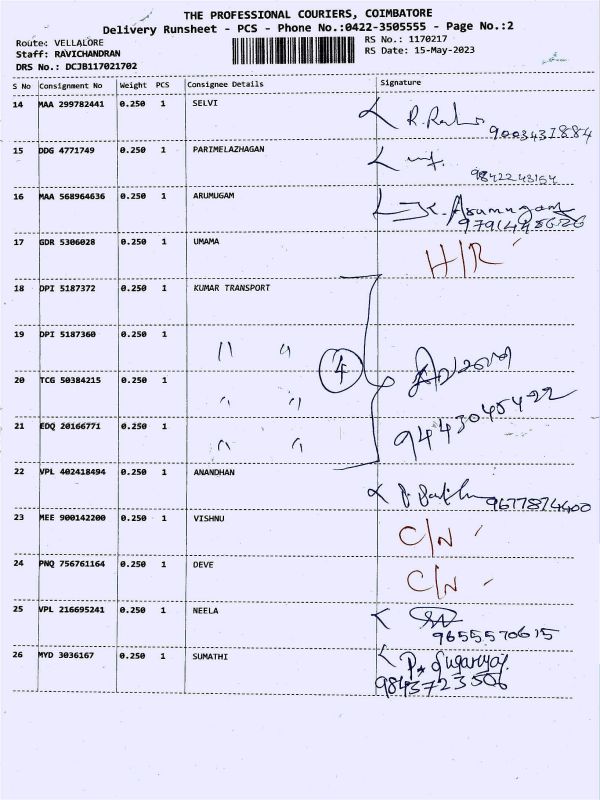 THE PROFESSIONAL COURIERS, COIMBATORE
Delivery Runsheet - PCS - Phone No.:0422-3505555 - Page No.:2
Route: VELLALORE
RS No.: 1170217
Staff: RAVICHANDRAN
RS Date: 15-May-2023
DRS No.: DCJB117021702
S No Consignment No Weight PCS Consignee Details Signature
14 MAA 299782441 0.250 1 SELVI
9003431884
15 DDG 4771749 0.250 1 PARIMELAZHAGAN
9842243154
16 MAA 568964636 0.250 1 ARUMUGAM K. Arumugam
17 GDR 5306028 0.250 1 UMAMA H/R
18 DPI 5187372 0.250 1 KUMAR TRANSPORT
19 DPI 5187360 0.250 1 " "
4
20 TCG 50384215 0.250 1 " "
9443045422
21 EDQ 20166771 0.250 1 " "
22 VPL 402418494 0.250 1 ANANDHAN
9677874400
23 MEE 900142200 0.250 1 VISHNU C/N
24 PNQ 756761164 0.250 1 DEVE C/N
25 VPL 216695241 0.250 1 NEELA
9655570615
26 MYD 3036167 0.250 1 SUMATHI
9843723506